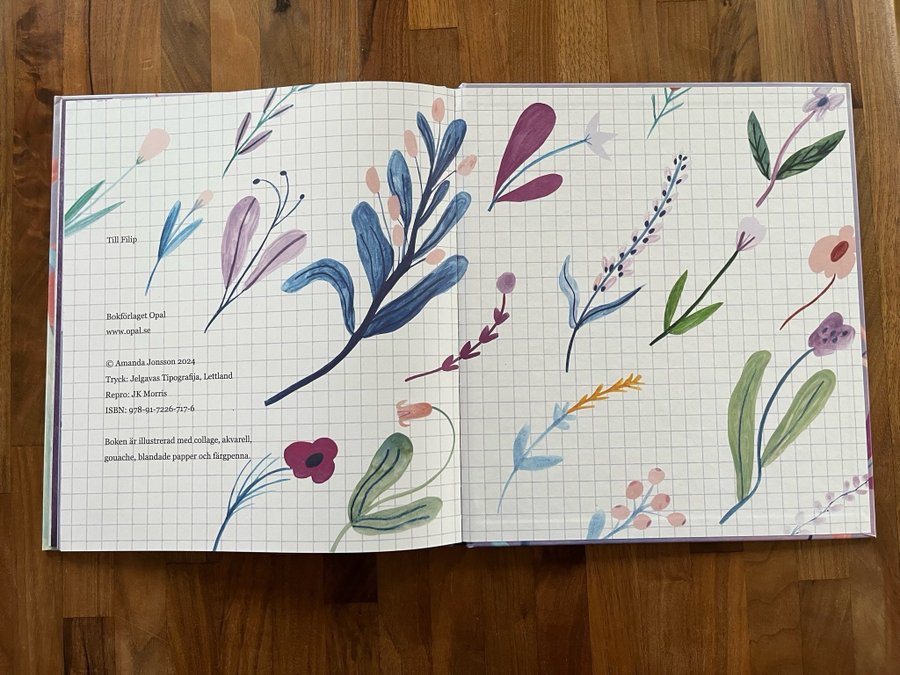 Till Filip
Bokförlaget Opal
www.opal.se
© Amanda Jonsson 2024
Tryck: Jelgavas Tipografija, Lettland
Repro: JK Morris
ISBN: 978-91-7226-717-6
Boken är illustrerad med collage, akvarell,
gouache, blandade papper och färgpenna.